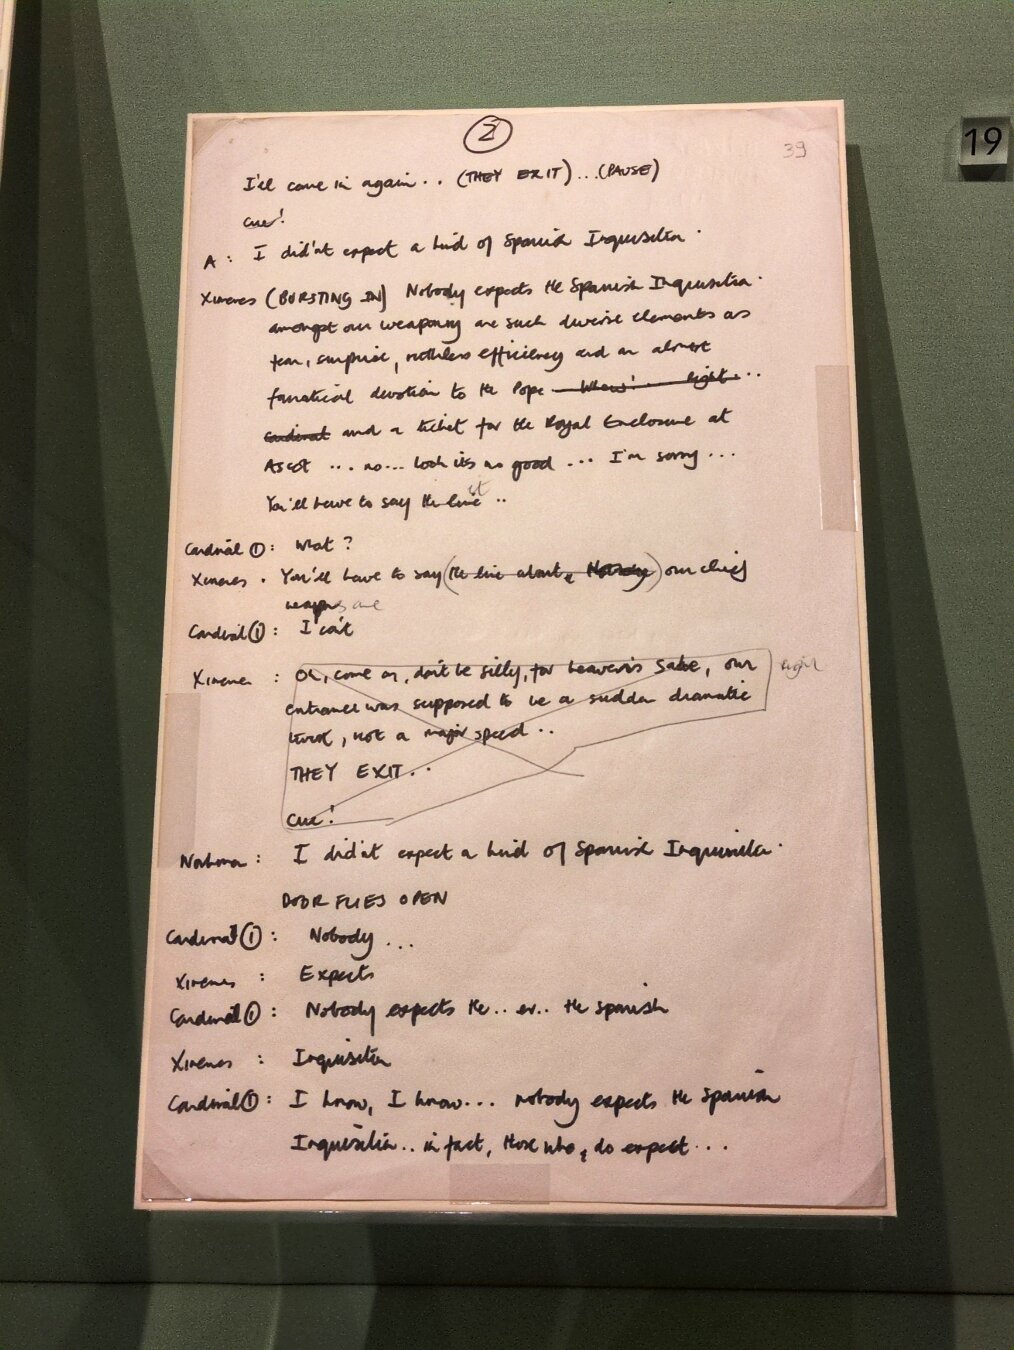 2
39
19
I'll come in again.. (THEY EXIT)...(PAUSE)
cue!
A: I did'nt expect a kind of Spanish Inquisition.
Ximenes (BURSTING IN) Nobody expects the Spanish Inquisition.
amongst our weaponry are such diverse elements as
fear, surprise, ruthless efficiency and an almost
fanatical devotion to the Pope ...
cardinal and a ticket for the Royal Enclosure at
Ascot ... no... look its no good ... I'm sorry ...
You'll have to say the line it ..
Cardinal 1: What?
Ximenes. You'll have to say (the line about, Nobody) our chief
weapons are
Cardinal 1: I can't
Ximenes: Oh, come on, don't be silly, for heaven's sake, our right
entrance was supposed to be a sudden dramatic
burst, not a major speech..
THEY EXIT..
Cue!
Northerner: I did'nt expect a kind of Spanish Inquisition.
DOOR FLIES OPEN
Cardinal 1: Nobody ...
Ximenes: Expects
Cardinal 1: Nobody expects the.. er.. the Spanish
Ximenes: Inquisition
Cardinal 1: I know, I know... nobody expects the Spanish
Inquisition.. in fact, those who do expect ...